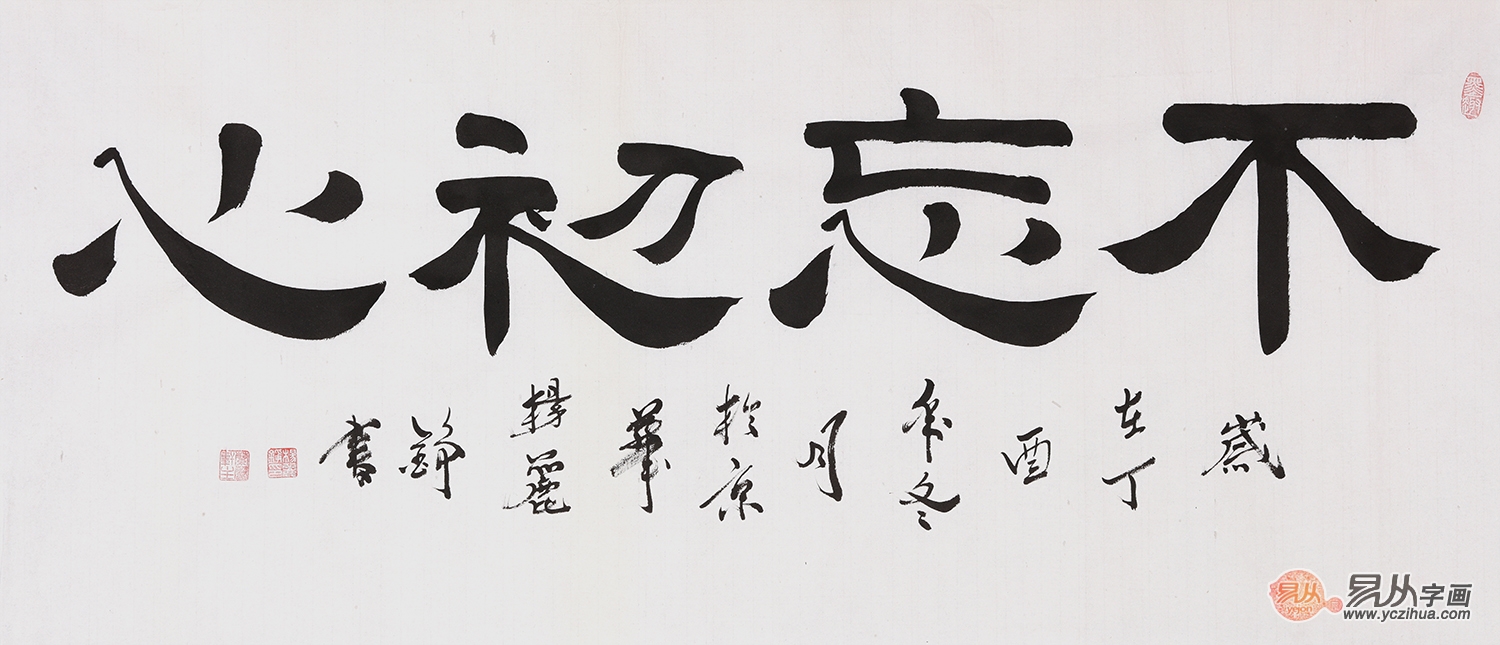 不忘初心
歲在丁酉年冬月於京華楊麗錚書
易从
易从字画
www.yczihua.com